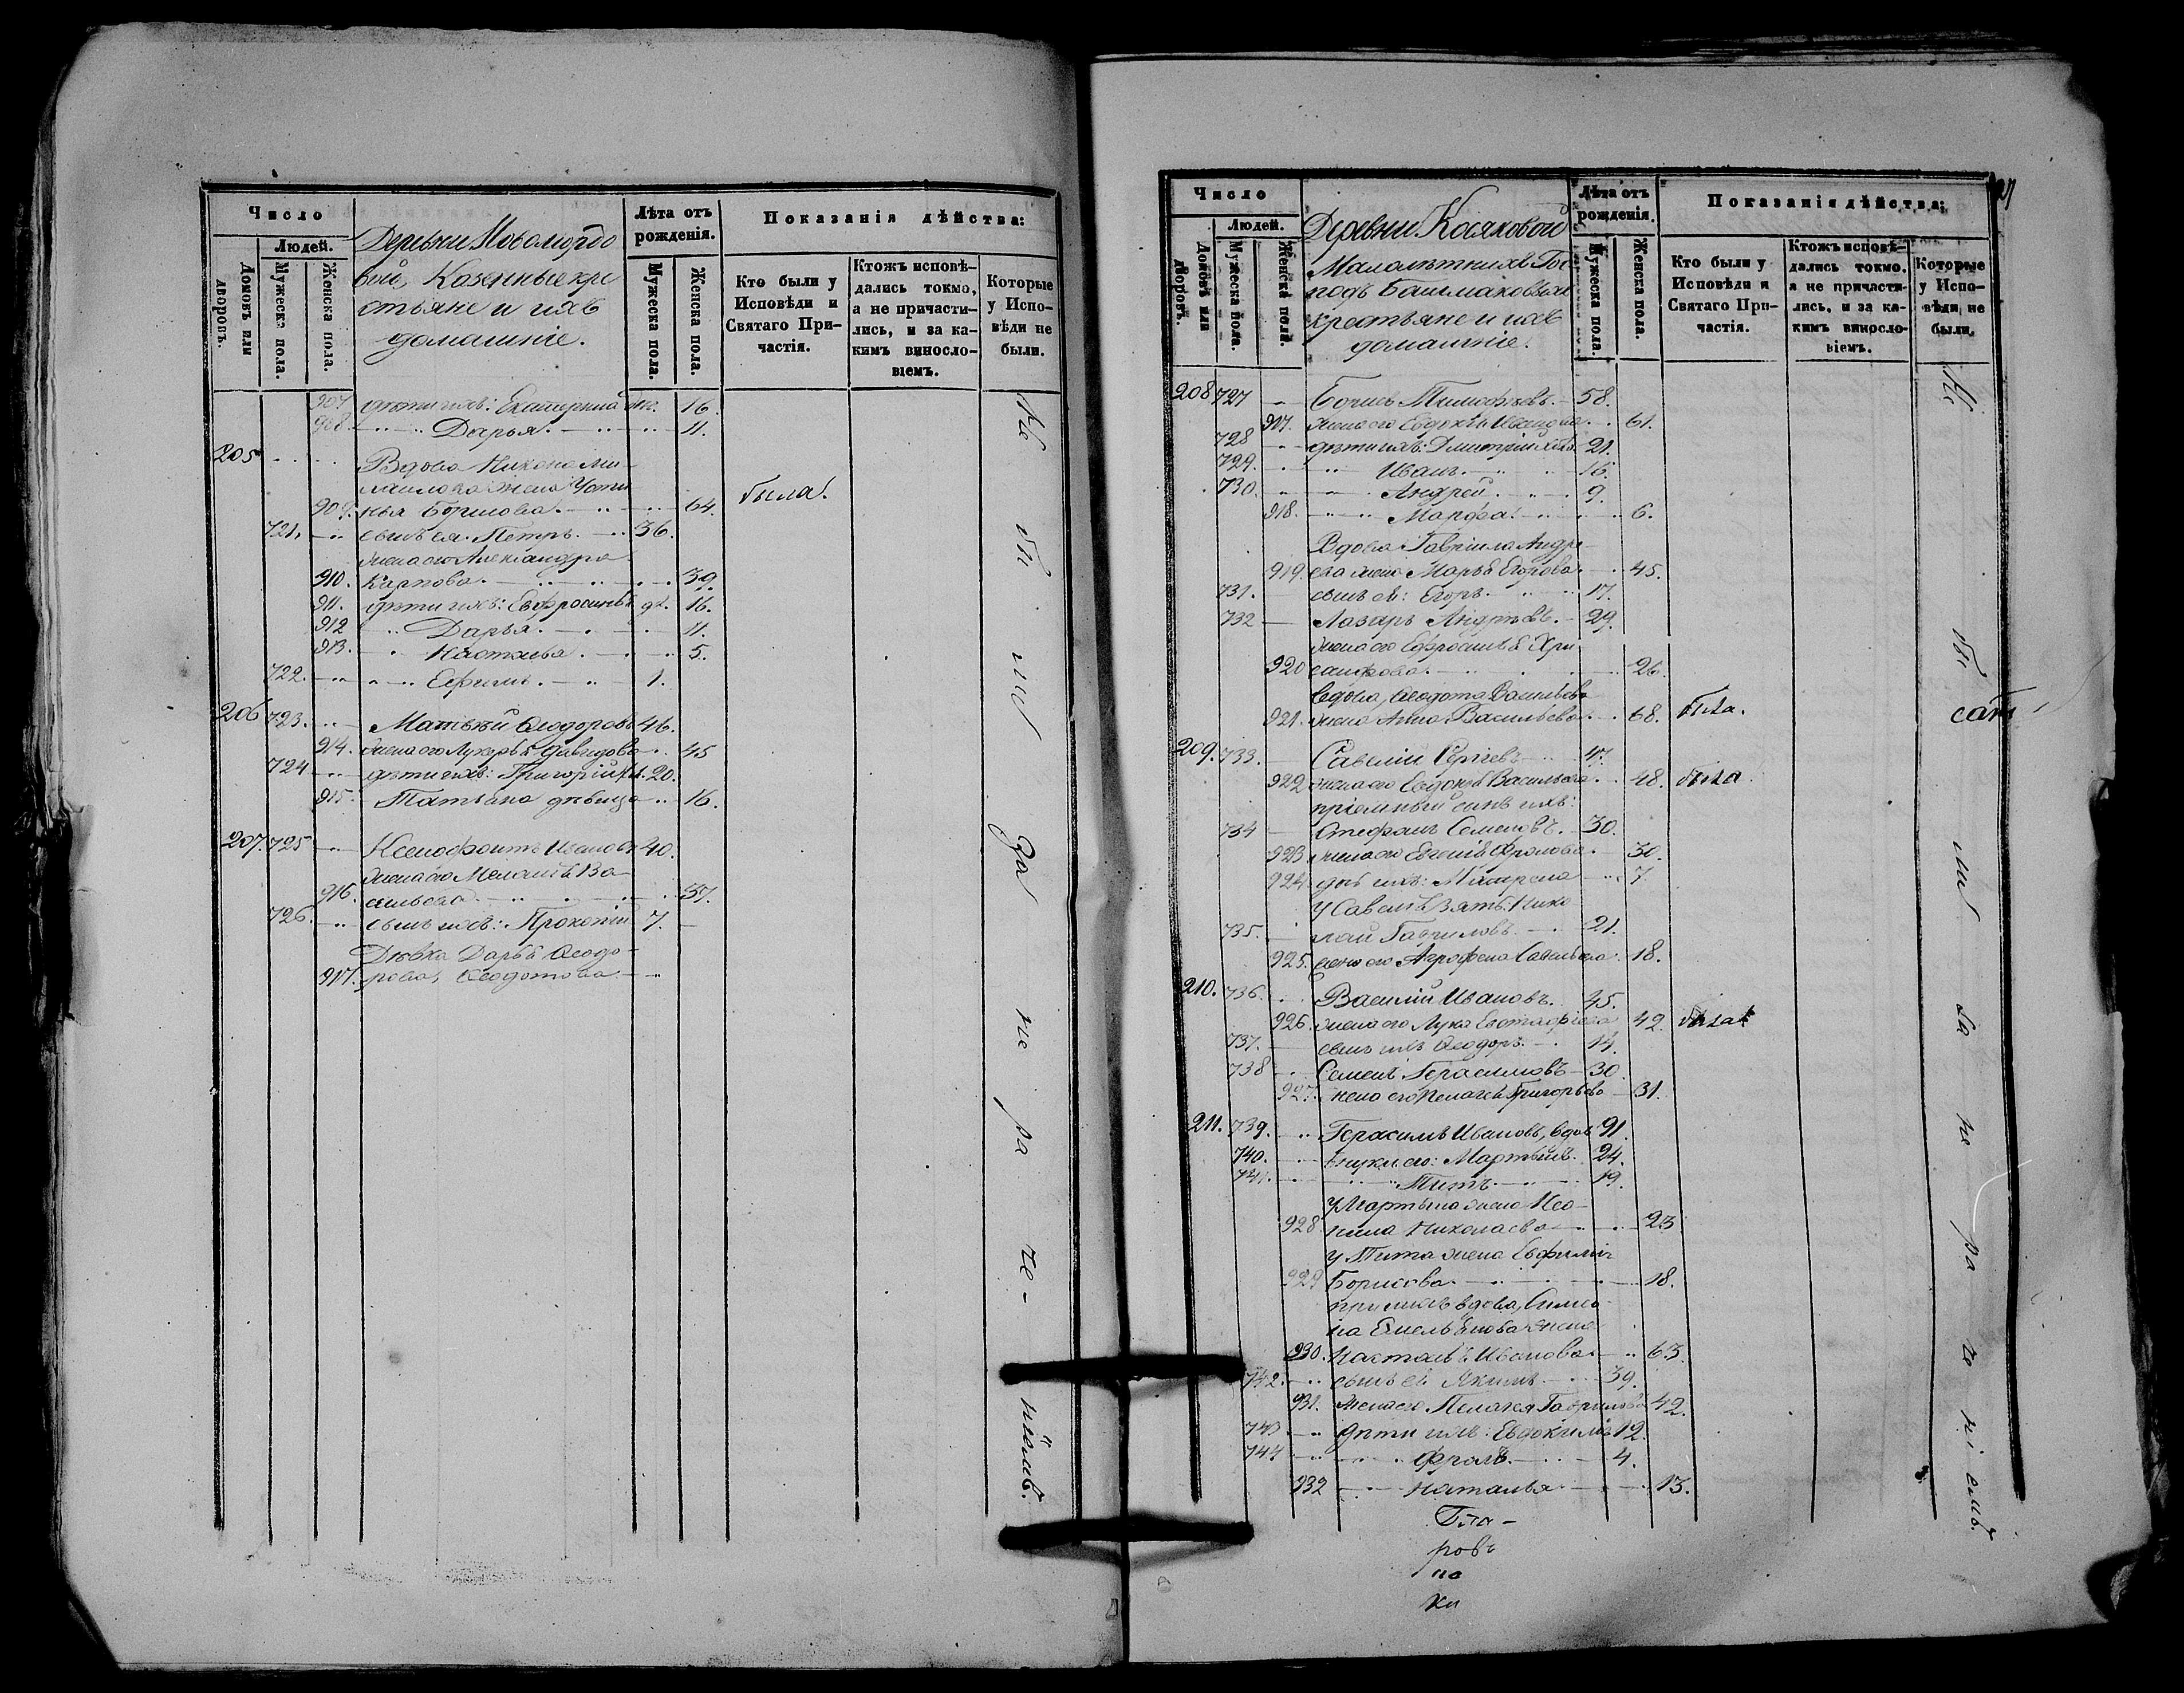 Число
Людей.
Домовъ или дворовъ.
Мужеска пола.
Женска пола.
Деревни Новомордо
вой, Казенные кре
стьяне и ихъ
домашніе.
Лѣта отъ рожденія.
Мужеска пола.
Женска пола.
Показанія дѣйства:
Кто были у Исповѣди и Святаго Причастія.
Ктожъ исповѣдались токмо, а не причастились, и за какимъ винословіемъ.
Которые у Исповѣди не были.
907. дѣти ихъ: Екатерина 16.
908. Дарья. 11.
205
Вдова Никона Ми
хаилова жена Усти
909. нья Борисова. 64. была.
721. сынъ ея Петръ. 36.
жена его Александра
910. Карпова. 39.
911. дѣти ихъ: Евфросинья 16.
912 Дарья. 11.
913. Настасья. 5.
722. Ефимъ. 1.
206 723. Матвѣй Ѳеодоровъ 46.
914. жена его Лукерья Давыдова 45
724 дѣти ихъ: Григорій 20.
915. Татьяна дѣвица 16.
207. 725 Ксенофонтъ Ивановъ 40.
жена его Меланья Ва
916. сильева 37.
726. сынъ ихъ: Прокопій 7.
Дѣвка Дарья Ѳеодо-
917. рова, Ѳеодотова
Не бы ли за не ра че- ніемъ.
27
Число
Людей.
Домовъ или дворовъ.
Мужеска пола.
Женска пола.
Деревни Косяковой
Малолѣтнихъ Гос
подъ Башмаковыхъ
крестьяне и ихъ
домашніе.
Лѣта отъ рожденія.
Мужеска пола.
Женска пола.
Показанія дѣйства:
Кто были у Исповѣди и Святаго Причастія.
Ктожъ исповѣдались токмо, а не причастились, и за какимъ винословіемъ.
Которые у Исповѣди не были.
208 727 Борисъ Тимофѣевъ. 58.
917. жена его Евдокія Иванова 61.
728 дѣти ихъ: Дмитрій 21.
729. Иванъ. 16.
730. Андрей. 9.
918. Марфа. 6.
Вдова Гавріила Андре
919. ева жена Марья Егорова 45.
731. сынъ ея: Егоръ. 17.
732 Лазарь Андреевъ. 29.
жена его Ефросинья Хри
920 санфова. 26.
Вдова, Ѳеодота Васильева
921. жена Анна Васильева 68. была.
209. 733. Савелій Сергѣевъ 47.
922 жена его Евдокія Васильева 48. была.
пріемный сынъ ихъ:
734 Стефанъ Семеновъ. 30.
923. жена его Евгенія Фролова 30.
924. дочь ихъ: Матрена 7.
У Савелія Зять Нико
735. лай Гавриловъ. 21.
925. жена его Агрофена Савельева 18.
210. 736. Василій Ивановъ. 45.
926. жена его Евстафіева 42. была
737. сынъ ихъ Ѳеодоръ. 14.
738 Семенъ Герасимовъ 30.
927. жена его Пелагея Григорьева 31.
211. 739. Герасимъ Ивановъ, вдовъ 91.
740. Внуки его: Мартынъ. 24.
741. Титъ. 19.
У Мартына жена Нео
928 нила Николаева 23
У Тита жена Евфимія
929 Борисова. 18.
при нихъ вдова, Симео
на Емельянова жена
930. Настасья Иванова 63.
742. сынъ ея Якимъ. 39.
931. жена его Пелагея Гаврилова 42.
743 дѣти ихъ: Евдокимъ 12.
744 Фролъ. 4.
932 Наталья 13.
Не бы ли за не ра че ні емъ.